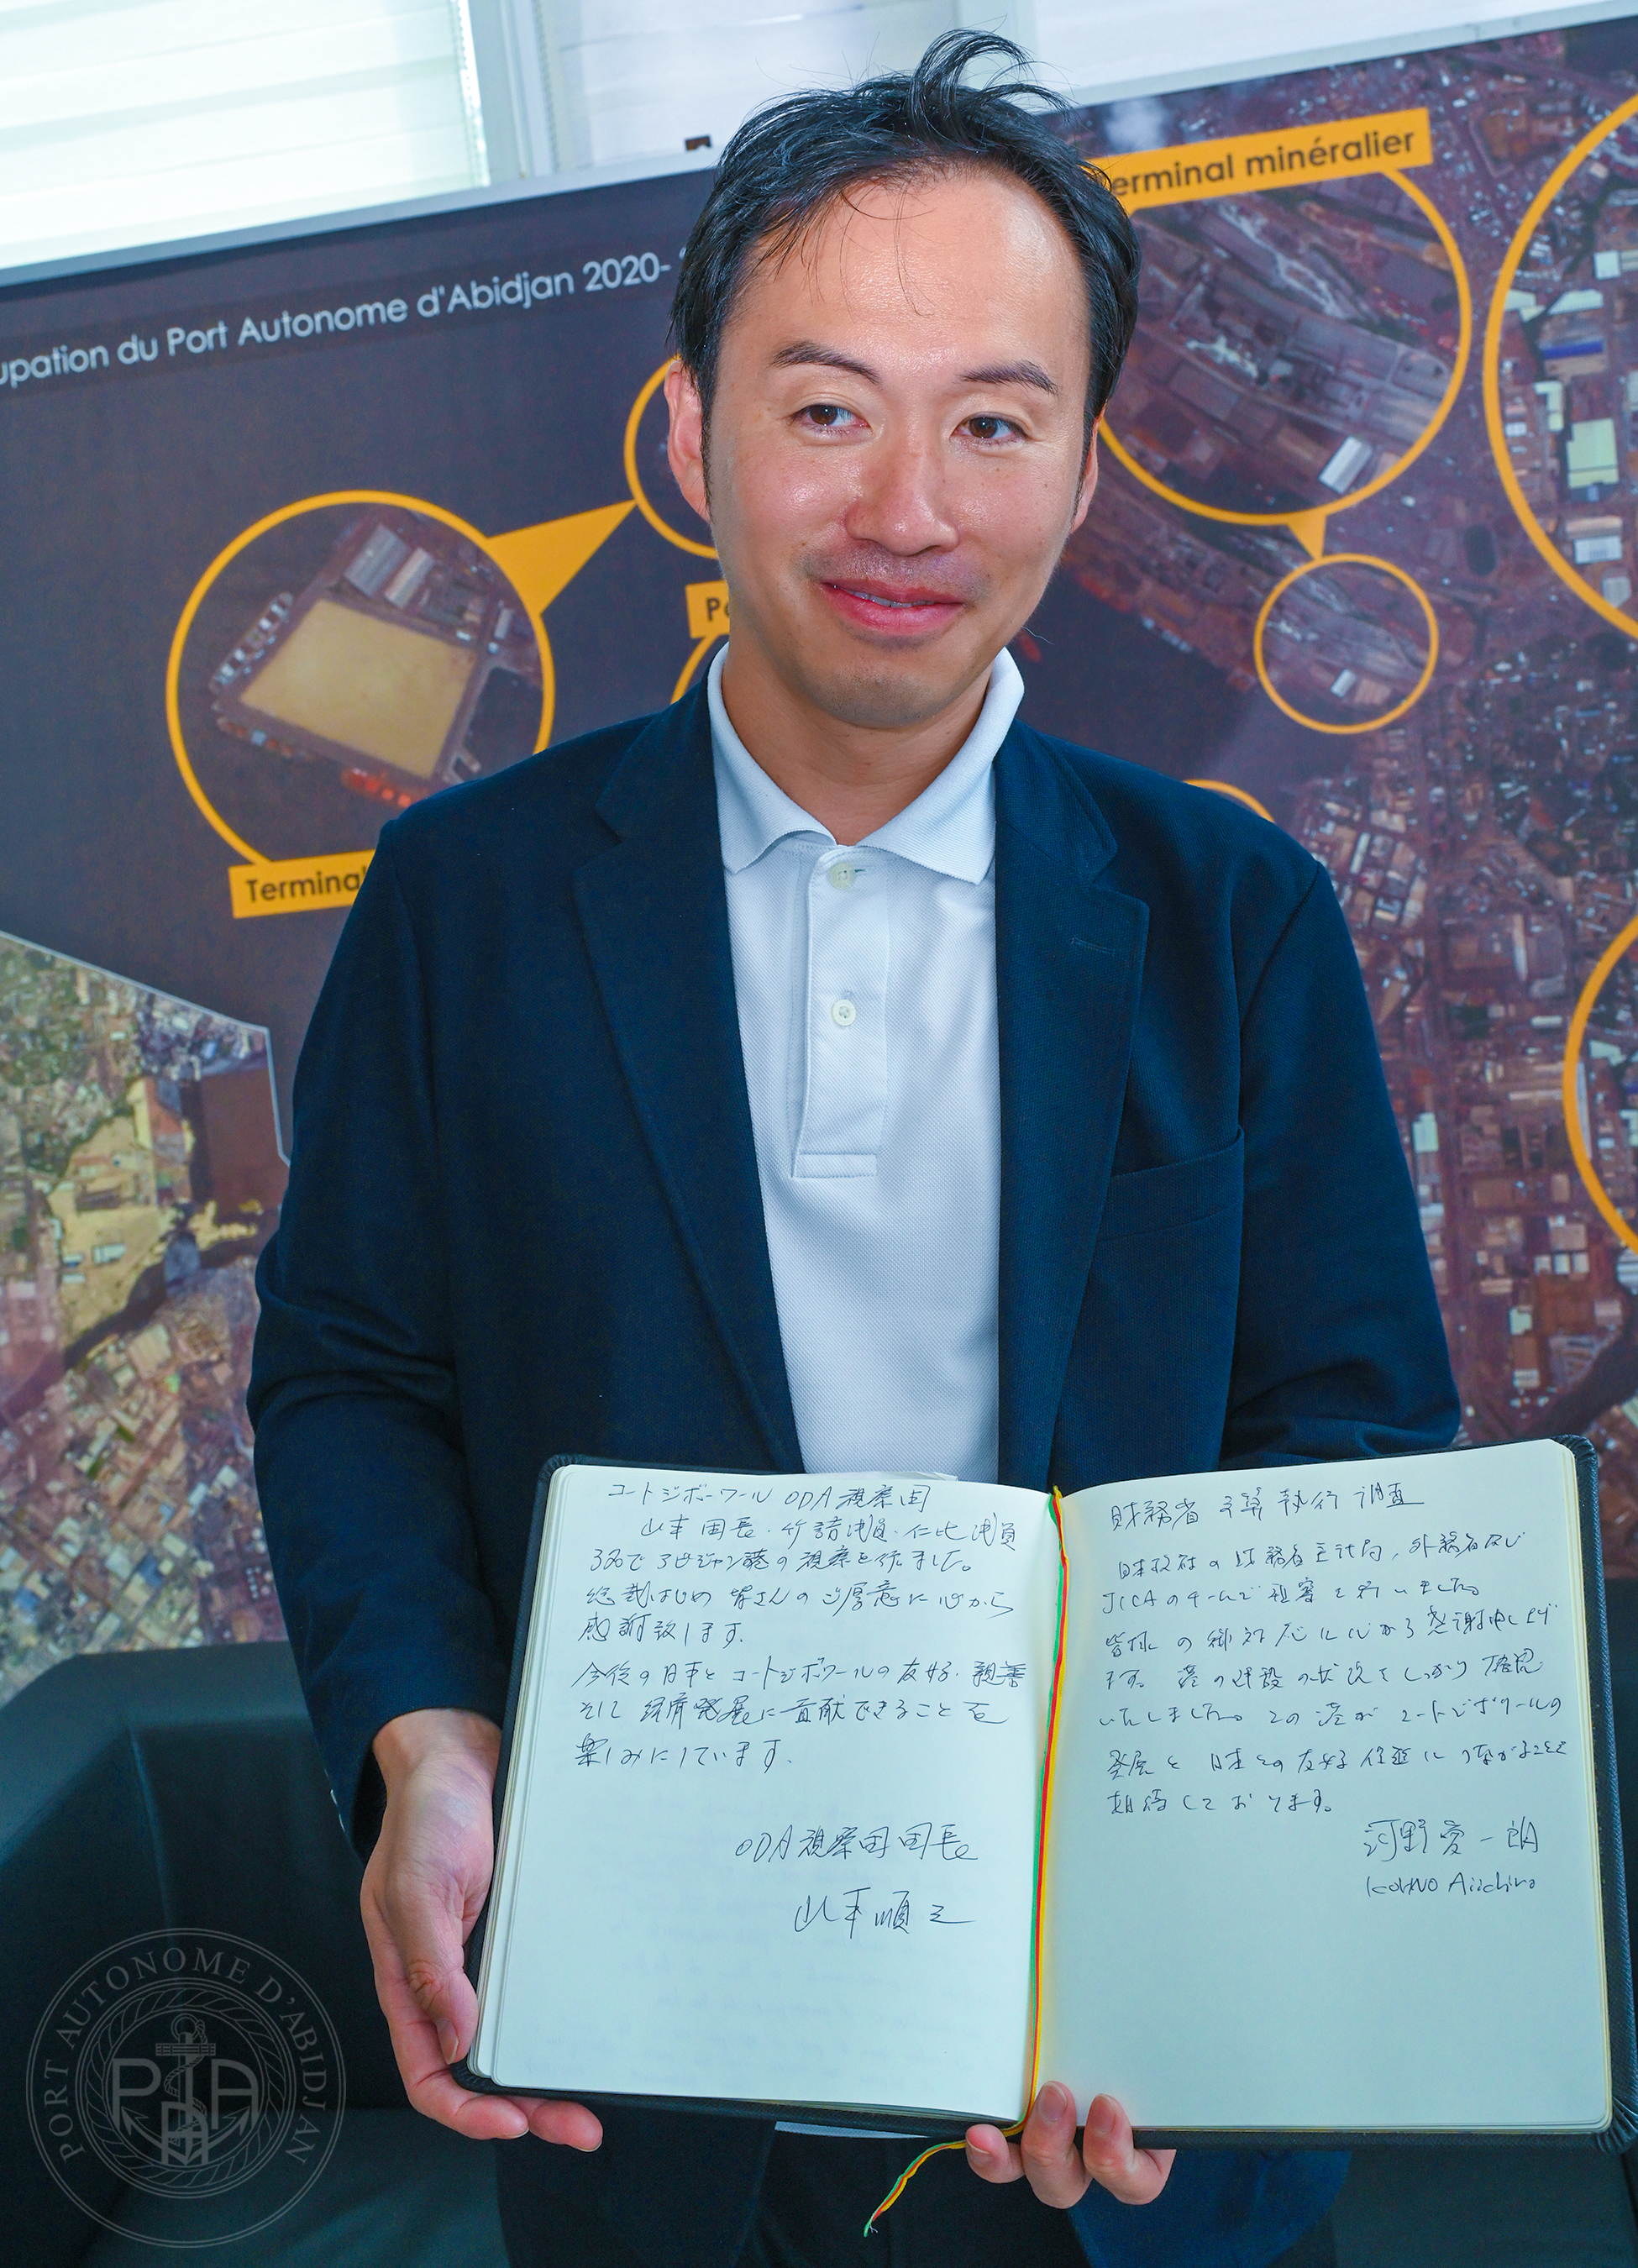 erminal minéralier
upation du Port Autonome d'Abidjan 2020-
Terminal
コートジボーワール ODA視察団
山本団長・竹詰議員・仁比議員
3名でアビジャン港の視察を来ました。
総裁はじめ皆さんのご厚意に心から
感謝致します。
今後の日本とコートジボワールの友好・親善
そして経済発展に貢献できることを
楽しみにしています。
ODA視察団団長
山本順三
財務省 予算執行調査
日本政府の財務省主計局、外務省及び
JICAのチームで視察を行いました。
皆様の御対応に心から感謝申し上げ
ます。港の建設の状況をしっかり確認
いたしました。この港がコートジボワールの
発展と日本との友好促進につながることを
期待しております。
河野愛一朗
KOHNO Aiichiro
PORT AUTONOME D'ABIDJAN
PAA